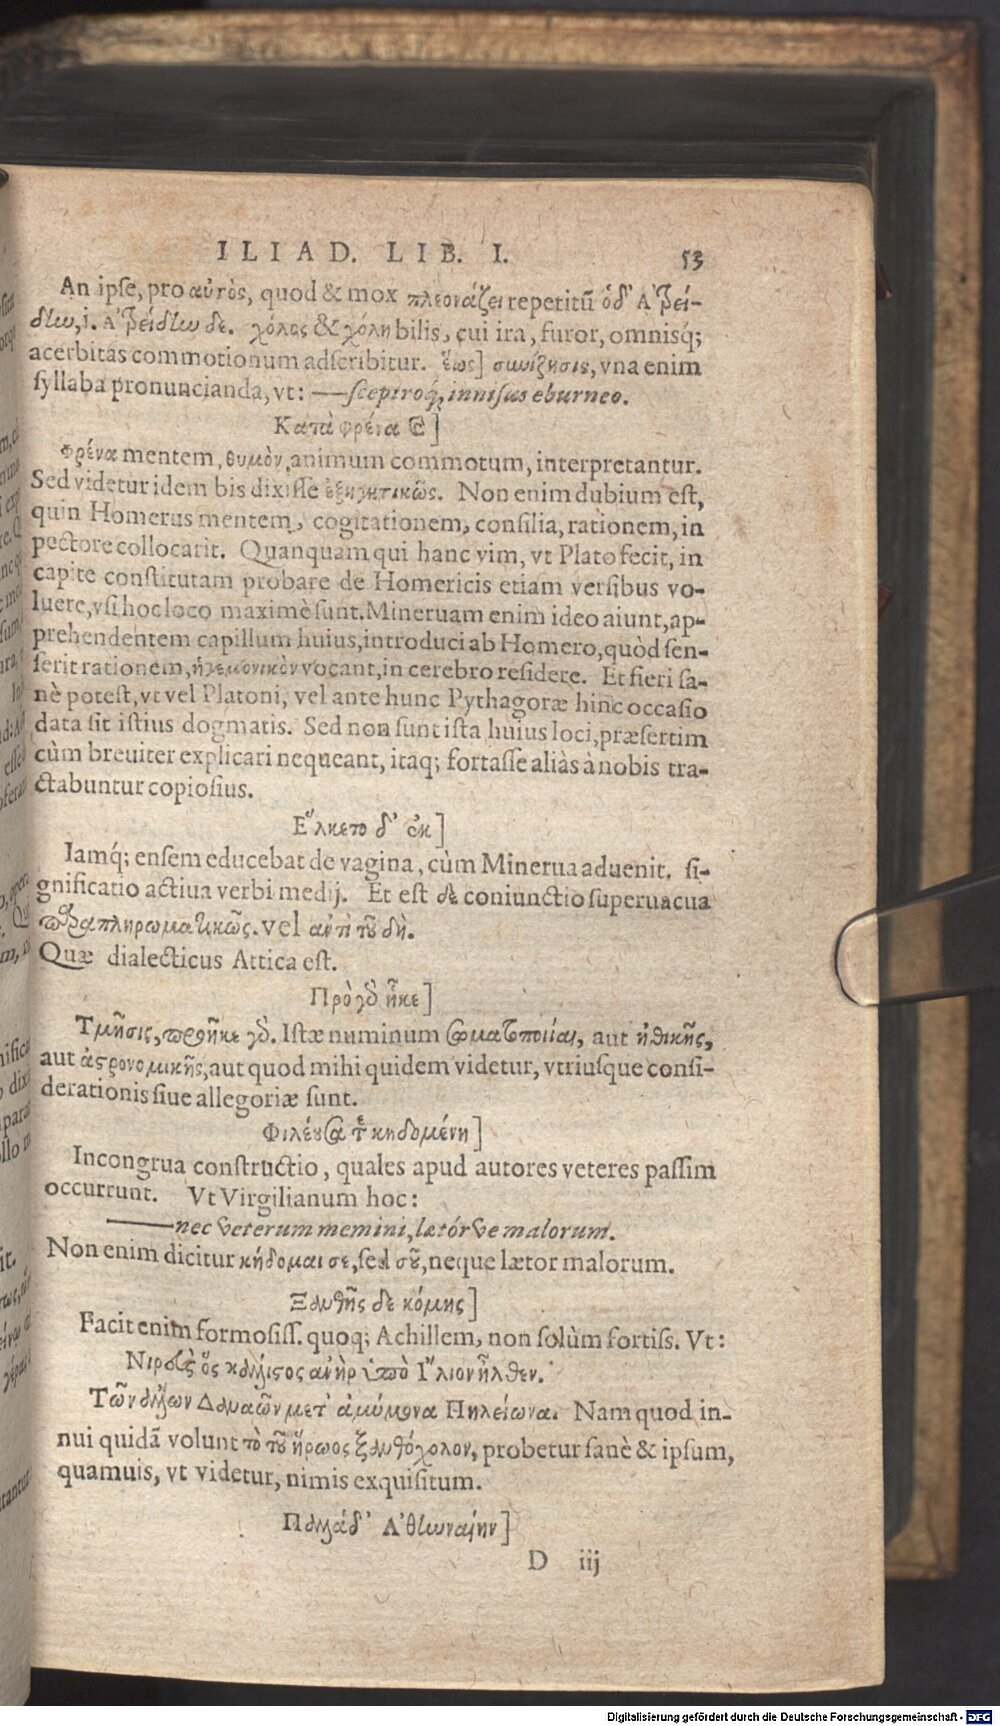 ILIAD. LIB. I. 53
An ipſe, pro αὐτὸς, quod & mox πλεονάζει repetitū ὁδ' Ἀτρεί-
δίω, i. Ἀτρείδίω δε. χόλος & χόλη bilis, cui ira, furor, omniſq;
acerbitas commotionum adſcribitur. ἕως] συνίζησις, vna enim
ſyllaba pronuncianda, vt: —ſceptroq́, inniſus eburneo.
Κατὰ φρένα καὶ]
Φρένα mentem, θυμὸν, animum commotum, interpretantur.
Sed videtur idem bis dixiſſe ἐξηγητικῶς. Non enim dubium eſt,
quin Homerus mentem, cogitationem, conſilia, rationem, in
pectore collocarit. Quanquam qui hanc vim, vt Plato fecit, in
capite conſtitutam probare de Homericis etiam verſibus vo-
luere, vſi hoc loco maximè ſunt. Mineruam enim ideo aiunt, ap-
prehendentem capillum huius, introduci ab Homero, quòd ſen-
ſerit rationem, ἡγεμονικὸν vocant, in cerebro reſidere. Et fieri ſa-
nè potest, vt vel Platoni, vel ante hunc Pythagoræ hinc occaſio
data ſit iſtius dogmatis. Sed non ſunt iſta huius loci, præſertim
cùm breuiter explicari nequeant, itaq; fortaſſe aliàs à nobis tra-
ctabuntur copioſius.
Ἕλκετο δ' ἐκ]
Iamq́; enſem educebat de vagina, cùm Minerua aduenit. ſi-
gnificatio actiua verbi medij. Et eſt δε coniunctio ſuperuacua
παραπληρωματικῶς. vel ἀντὶ τοῦ δὴ.
Quæ dialecticus Attica eſt.
Πρὸ γὰρ ἧκε]
Τμῆσις, προῆκε γὰρ. Iſtæ numinum σωματοποιίαι, aut ἠθικῆς,
aut ἀστρονομικῆς, aut quod mihi quidem videtur, vtriuſque conſi-
derationis ſiue allegoriæ ſunt.
Φιλέουσα τὲ κηδομένη]
Incongrua conſtructio, quales apud autores veteres paſſim
occurrunt. Vt Virgilianum hoc:
—nec veterum memini, lætórve malorum.
Non enim dicitur κήδομαι σε, ſed σοῦ, neque lætor malorum.
Ξανθῆς δε κόμης]
Facit enim formoſiſſ. quoq; Achillem, non ſolùm fortiſs. Vt:
Νιρεὺς ὃς κάλλιστος ἀνὴρ ὑπὸ Ἴλιον ἦλθεν.
Τῶν ἄλλων Δαναῶν μετ' ἀμύμονα Πηλείωνα. Nam quod in-
nui quidā volunt τὸ τοῦ ἥρωος ξανθόχολον, probetur ſanè & ipſum,
quamuis, vt videtur, nimis exquiſitum.
Παλλάδ' Ἀθίωναίην]
D iij
Digitalisierung gefördert durch die Deutsche Forschungsgemeinschaft - DFG